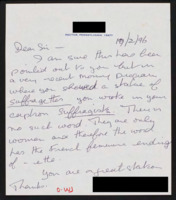 10/2/96
Dear Sir -
I am sure this has been
pointed out to you but in
a very recent morning program
where you showed a statue of
suffragettes you wrote in your
caption suffragists. There is
no such word. They are only
women and therefore the word
has the French feminine ending
of - ette.
You are a great station
Thanks.